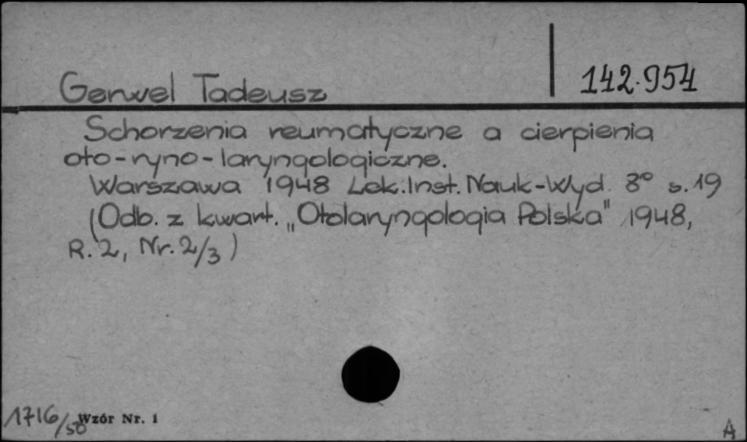 Gerwel Tadeusz
142.954
Schorzenia reumatyczne a cierpienia
oto-ryno-laryngologiczne.
Warszawa 1948 Lek.Inst.Nauk-Wyd. 8° s.19
(Odb. z kwart. „Otolaryngologia Polska" 1948,
R.2, Nr.2/3)
1716/50 Wzór Nr. 1
A